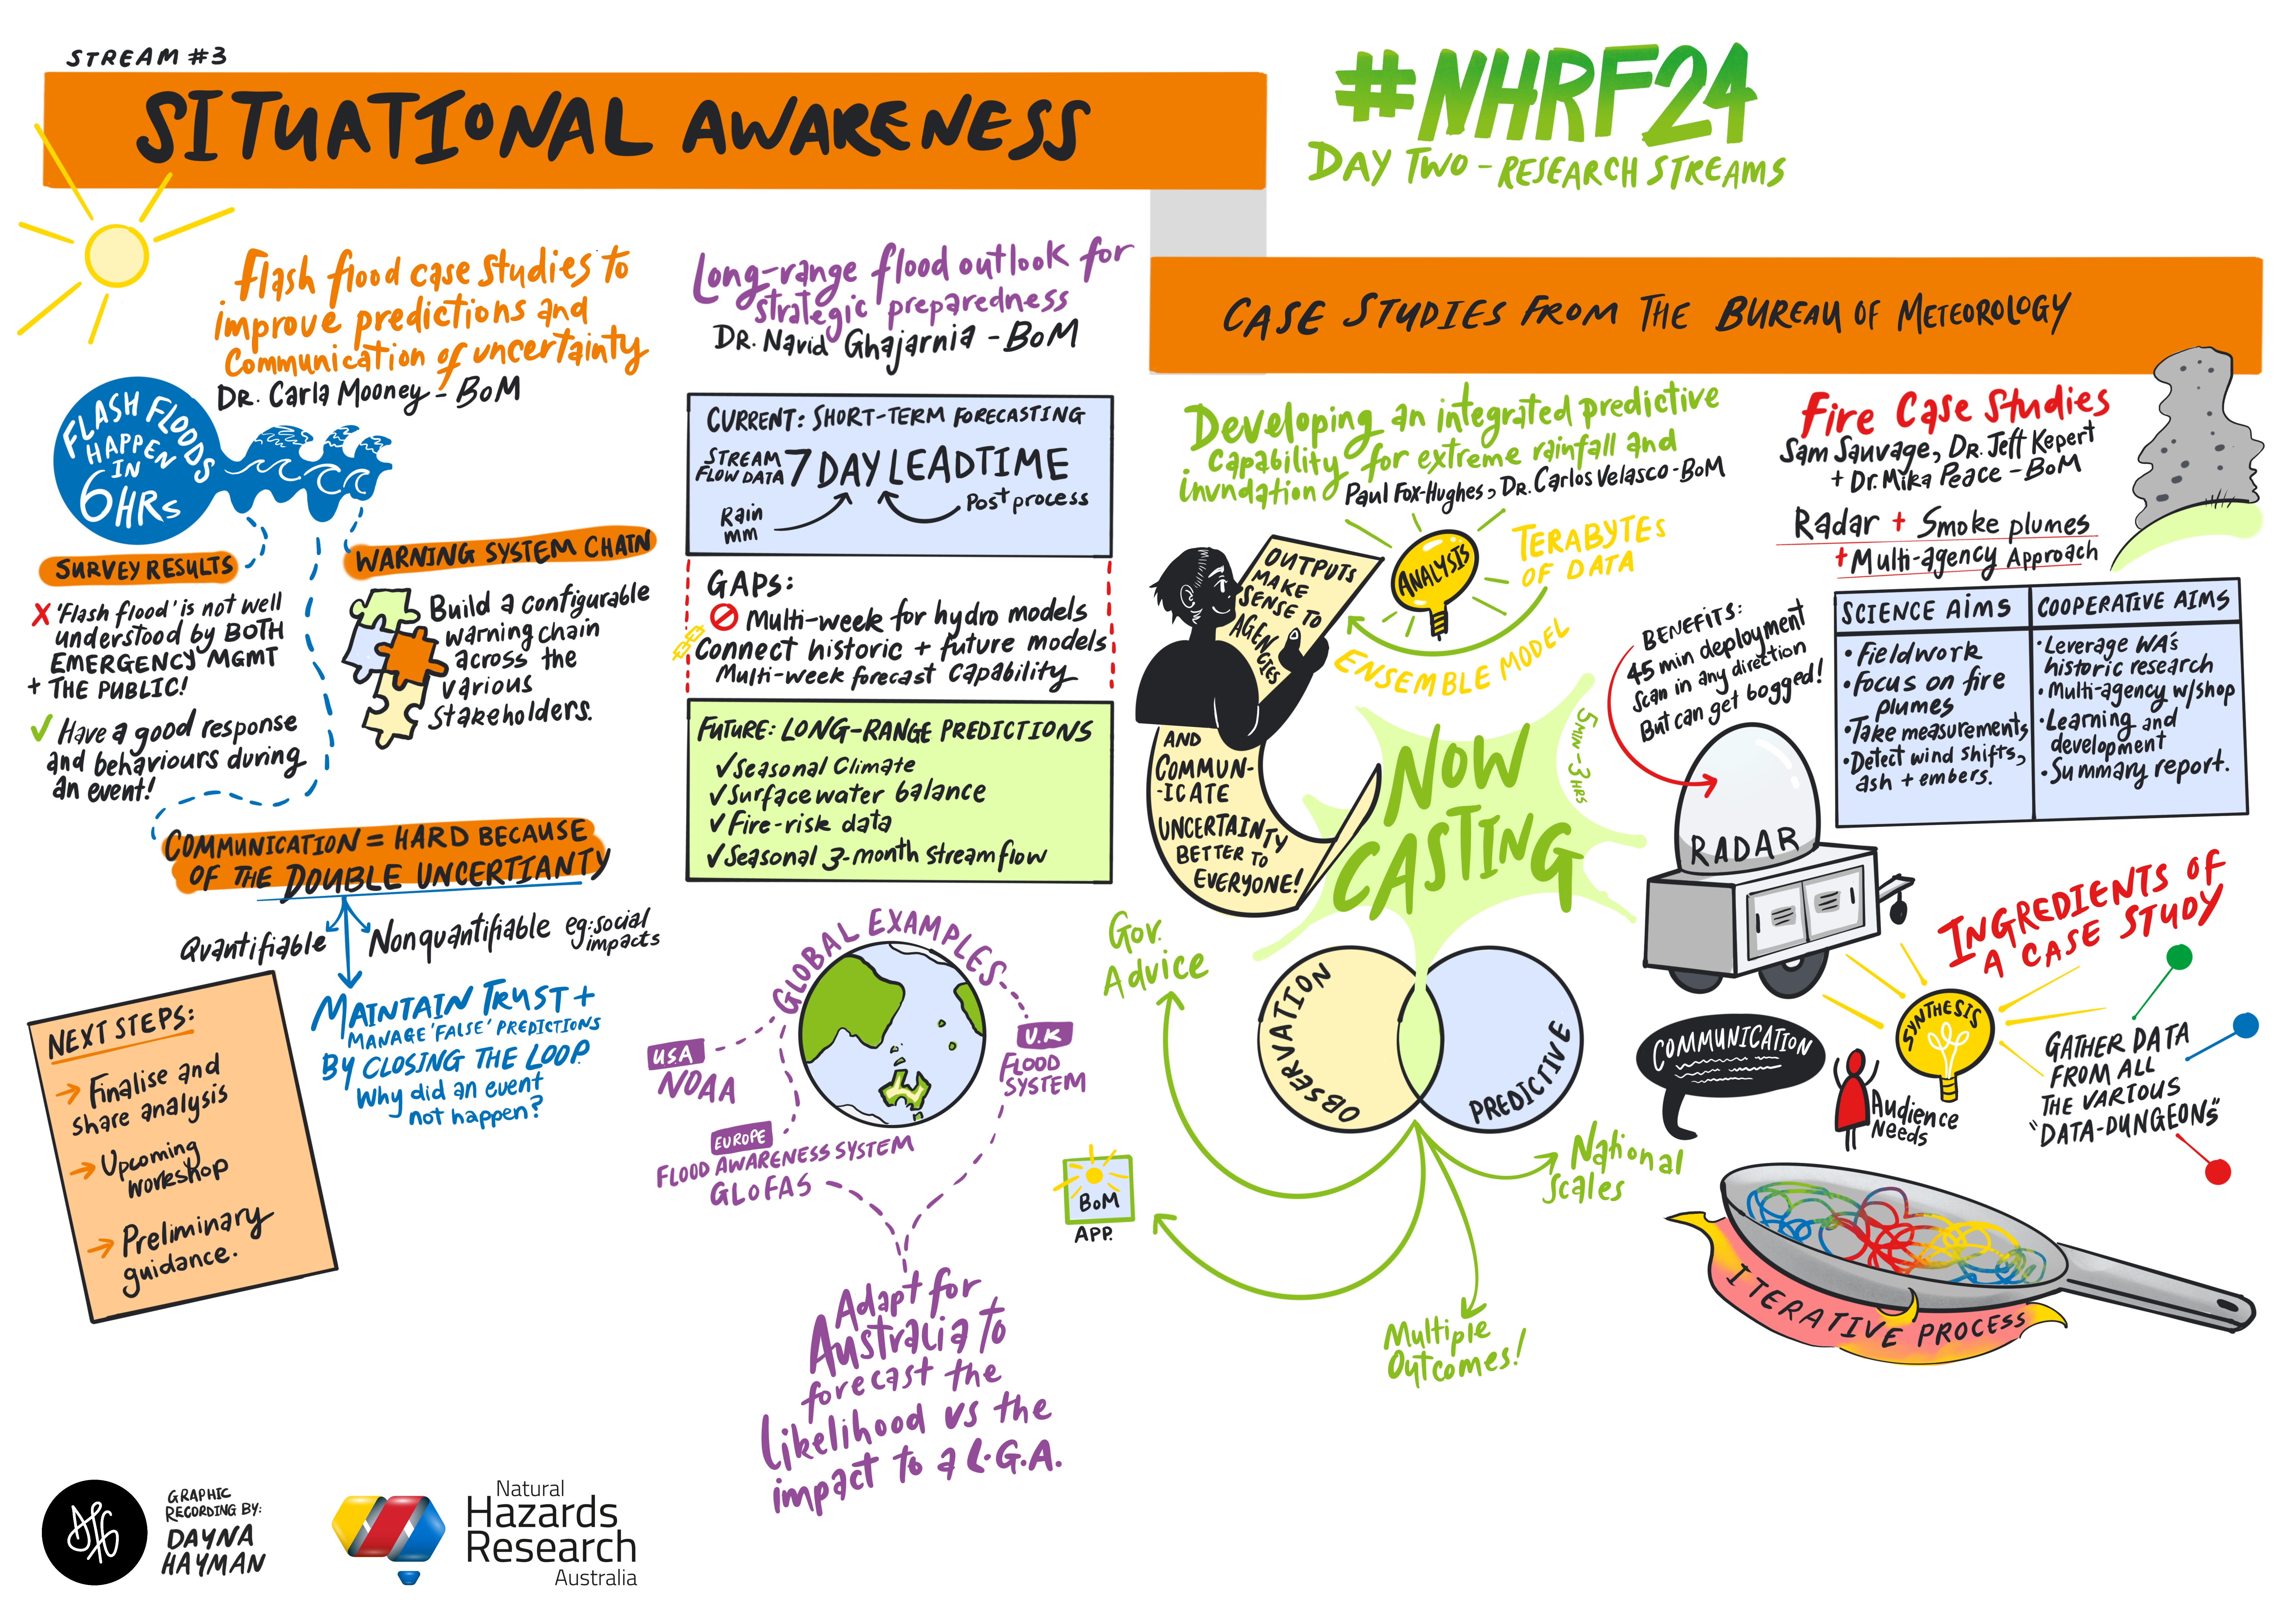 STREAM #3
SITUATIONAL AWARENESS
#NHRF24
DAY TWO - RESEARCH STREAMS
CASE STUDIES FROM THE BUREAU OF METEOROLOGY
Flash flood case studies to
improve predictions and
Communication of uncertainty
DR. Carla Mooney - BoM
FLASH FLOODS
HAPPEN
IN
6HRs
SURVEY RESULTS
X 'Flash flood' is not well
understood by BOTH
EMERGENCY MGMT
+ THE PUBLIC!
✓ Have a good response
and behaviours during
an event!
WARNING SYSTEM CHAIN
Build a configurable
warning chain
across the
various
stakeholders.
COMMUNICATION = HARD BECAUSE
OF THE DOUBLE UNCERTIANTY
Quantifiable
Nonquantifiable eg: social
impacts
MAINTAIN TRUST +
MANAGE 'FALSE' PREDICTIONS
BY CLOSING THE LOOP.
Why did an event
not happen?
NEXT STEPS:
→ Finalise and
share analysis
→ Upcoming
workshop
→ Preliminary
guidance.
Long-range flood outlook for
strategic preparedness
DR. Navid Ghajarnia - BoM
CURRENT: SHORT-TERM FORECASTING
STREAM
FLOW DATA
7 DAY LEADTIME
Rain
mm
Post process
GAPS:
Multi-week for hydro models
Connect historic + future models
Multi-week forecast capability
FUTURE: LONG-RANGE PREDICTIONS
✓ Seasonal Climate
✓ Surface water balance
✓ Fire-risk data
✓ Seasonal 3-month streamflow
GLOBAL EXAMPLES
USA
NOAA
U.K
FLOOD
SYSTEM
EUROPE
FLOOD AWARENESS SYSTEM
GLOFAS
Adapt for
Australia to
forecast the
Likelihood vs the
impact to a L.G.A.
Developing an integrated predictive
capability for extreme rainfall and
inundation
Paul Fox-Hughes, DR. Carlos Velasco - BoM
OUTPUTS
MAKE
SENSE TO
AGENCIES
AND
COMMUN-
-ICATE
UNCERTAINTY
BETTER TO
EVERYONE!
ANALYSIS
TERABYTES
OF DATA
ENSEMBLE MODEL
NOW
CASTING
5 MIN - 3 HRS
OBSERVATION
PREDICTIVE
Gov.
Advice
BoM
APP.
National
Scales
Multiple
Outcomes!
Fire Case Studies
Sam Sauvage, DR. Jeff Kepert
+ Dr. Mika Peace - BoM
Radar + Smoke plumes
+ Multi-agency Approach
BENEFITS:
45 min deployment
Scan in any direction
But can get bogged!
RADAR
SCIENCE AIMS
• Fieldwork
• Focus on fire
plumes
• Take measurements
• Detect wind shifts,
ash + embers.
COOPERATIVE AIMS
• Leverage WA's
historic research
• Multi-agency w/shop
• Learning and
development
• Summary report.
INGREDIENTS OF
A CASE STUDY
SYNTHESIS
COMMUNICATION
Audience
Needs
GATHER DATA
FROM ALL
THE VARIOUS
"DATA-DUNGEONS"
ITERATIVE PROCESS
GRAPHIC
RECORDING BY:
DAYNA
HAYMAN
Natural
Hazards
Research
Australia